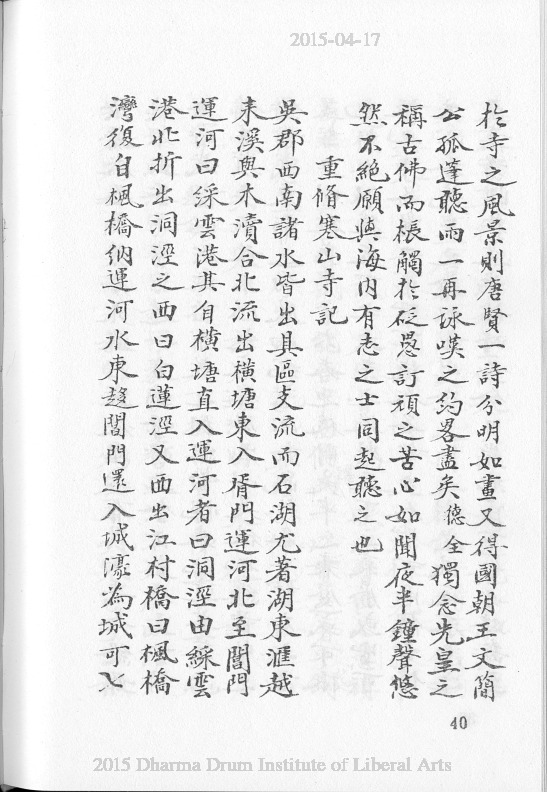 2015-04-17
於寺之風景則唐賢一詩分明如畫又得國朝王文簡
公孤蓬聽雨一再詠嘆之約畧盡矣德全獨念先皇之
稱古佛而棖觸於砭愚訂頑之苦心如聞夜半鐘聲悠
然不絕願與海內有志之士同起聽之也
重脩寒山寺記
吳郡西南諸水皆出具區支流而石湖尤著湖東滙越
來溪與木瀆合北流出橫塘東入胥門運河北至閶門
運河曰綵雲港其自橫塘直入運河者曰洞涇由綵雲
港北折出洞涇之西曰白蓮涇又西出江村橋曰楓橋
灣復自楓橋納運河水東趍閶門還入城濠為城可七
40
2015 Dharma Drum Institute of Liberal Arts